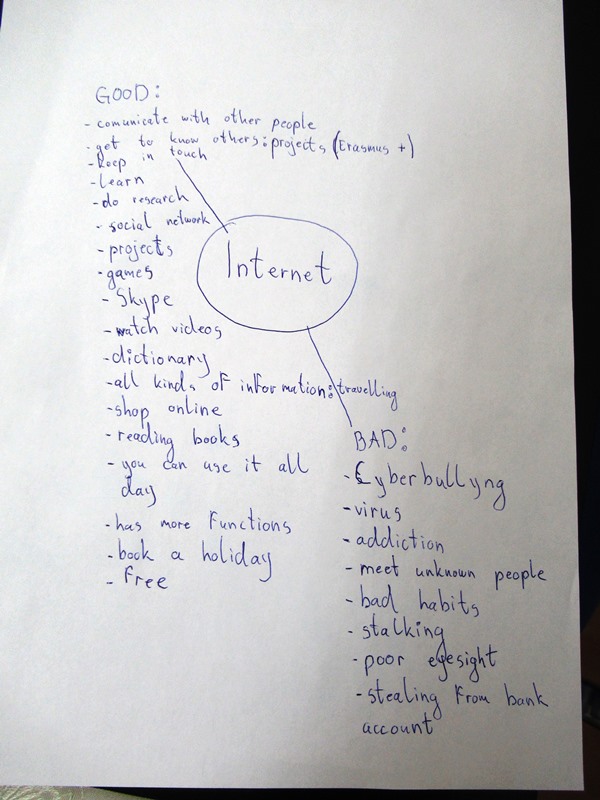 GOOD:
- comunicate with other people
- get to know others: projects (Erasmus +)
- keep in touch
- learn
- do research
- social network
- projects
- games
- Skype
- watch videos
- dictionary
- all kinds of information: travelling
- shop online
- reading books
- you can use it all
day
- has more functions
- book a holiday
- free
Internet
BAD:
- Cyberbullyng
- virus
- addiction
- meet unknown people
- bad habits
- stalking
- poor eyesight
- stealing from bank
account